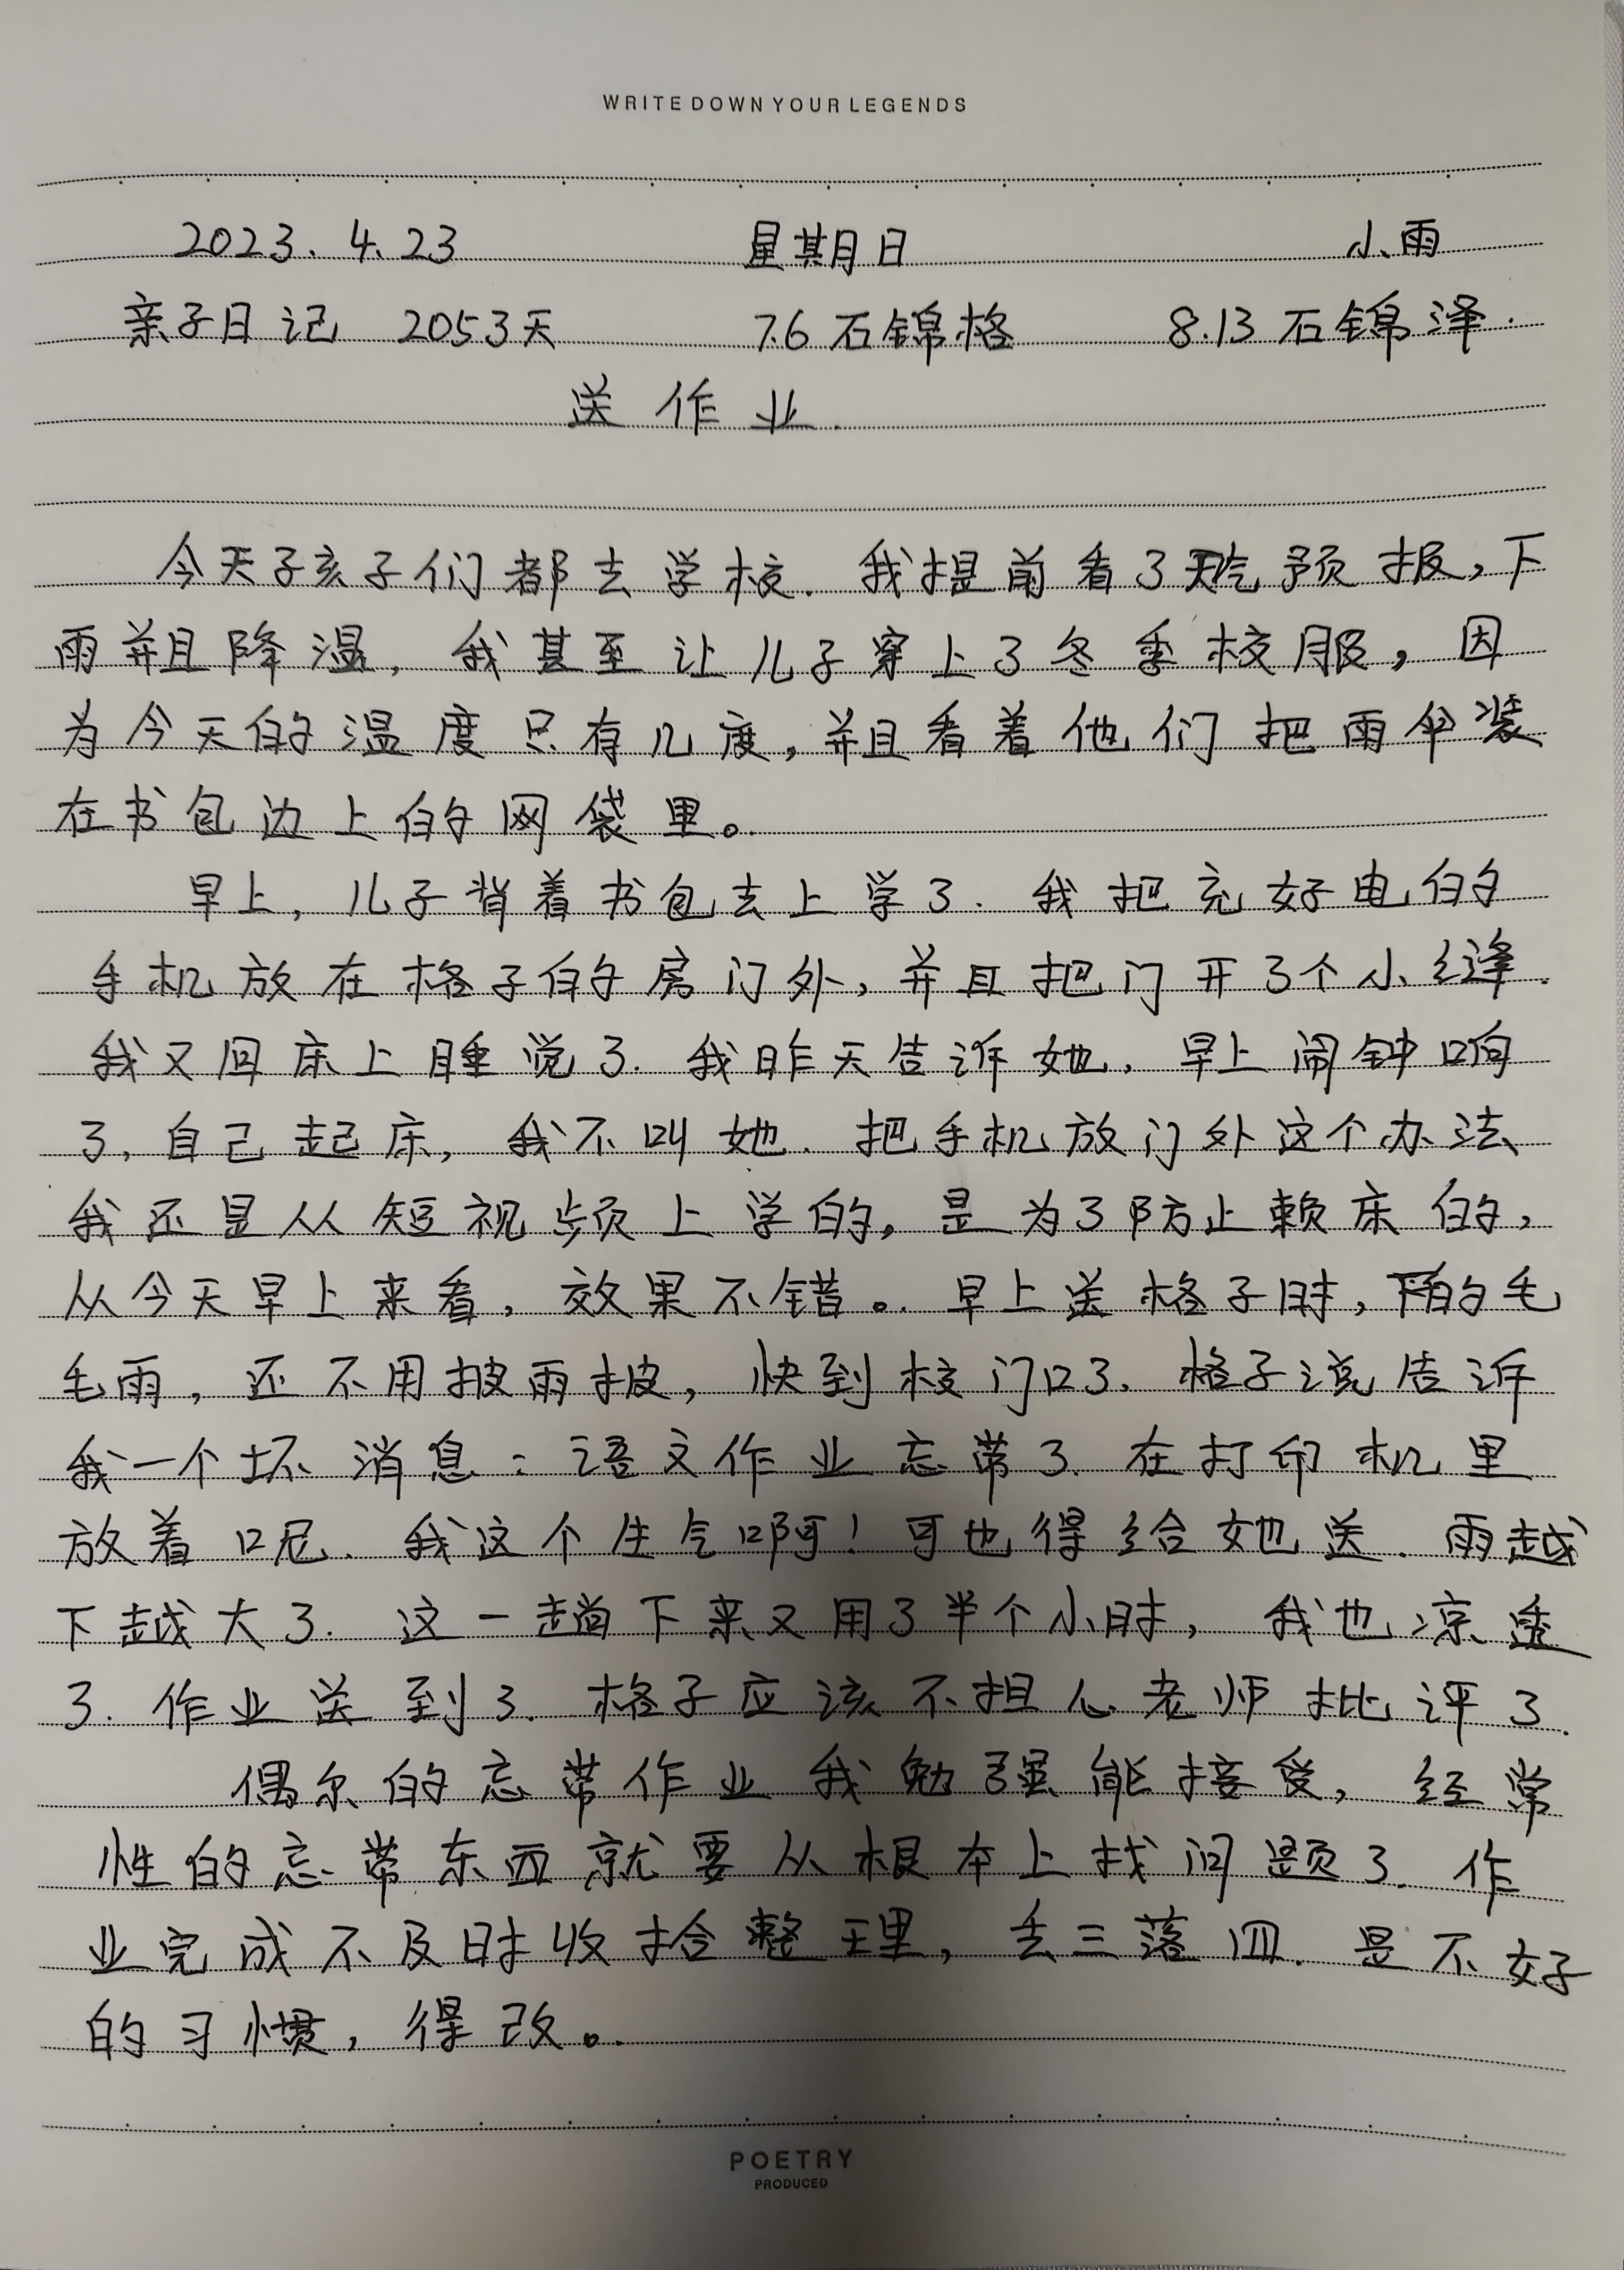 WRITE DOWN YOUR LEGENDS
2023.4.23 星期日 小雨
亲子日记 2053天 7.6石锦格 8.13石锦泽.
送作业.
今天孩子们都去学校.我提前看了天气预报,下
雨并且降温,我甚至让儿子穿上了冬季校服,因
为今天的温度只有几度,并且看着他们把雨伞装
在书包边上的网袋里。
早上,儿子背着书包去上学了.我把充好电的
手机放在格子的房门外,并且把门开了个小缝.
我又回床上睡觉了.我昨天告诉她,早上闹钟响
了,自己起床,我不叫她.把手机放门外这个办法
我还是从短视频上学的,是为了防止赖床的,
从今天早上来看,效果不错。早上送格子时,下的毛
毛雨,还不用披雨披,快到校门口了.格子说告诉
我一个坏消息:语文作业忘带了.在打印机里
放着呢.我这个生气啊!可也得给她送.雨越
下越大了.这一趟下来又用了半个小时,我也凉透
了.作业送到了.格子应该不担心老师批评了.
偶尔的忘带作业我勉强能接受,经常
性的忘带东西就要从根本上找问题了.作
业完成不及时收拾整理,丢三落四.是不好
的习惯,得改。
POETRY
PRODUCED